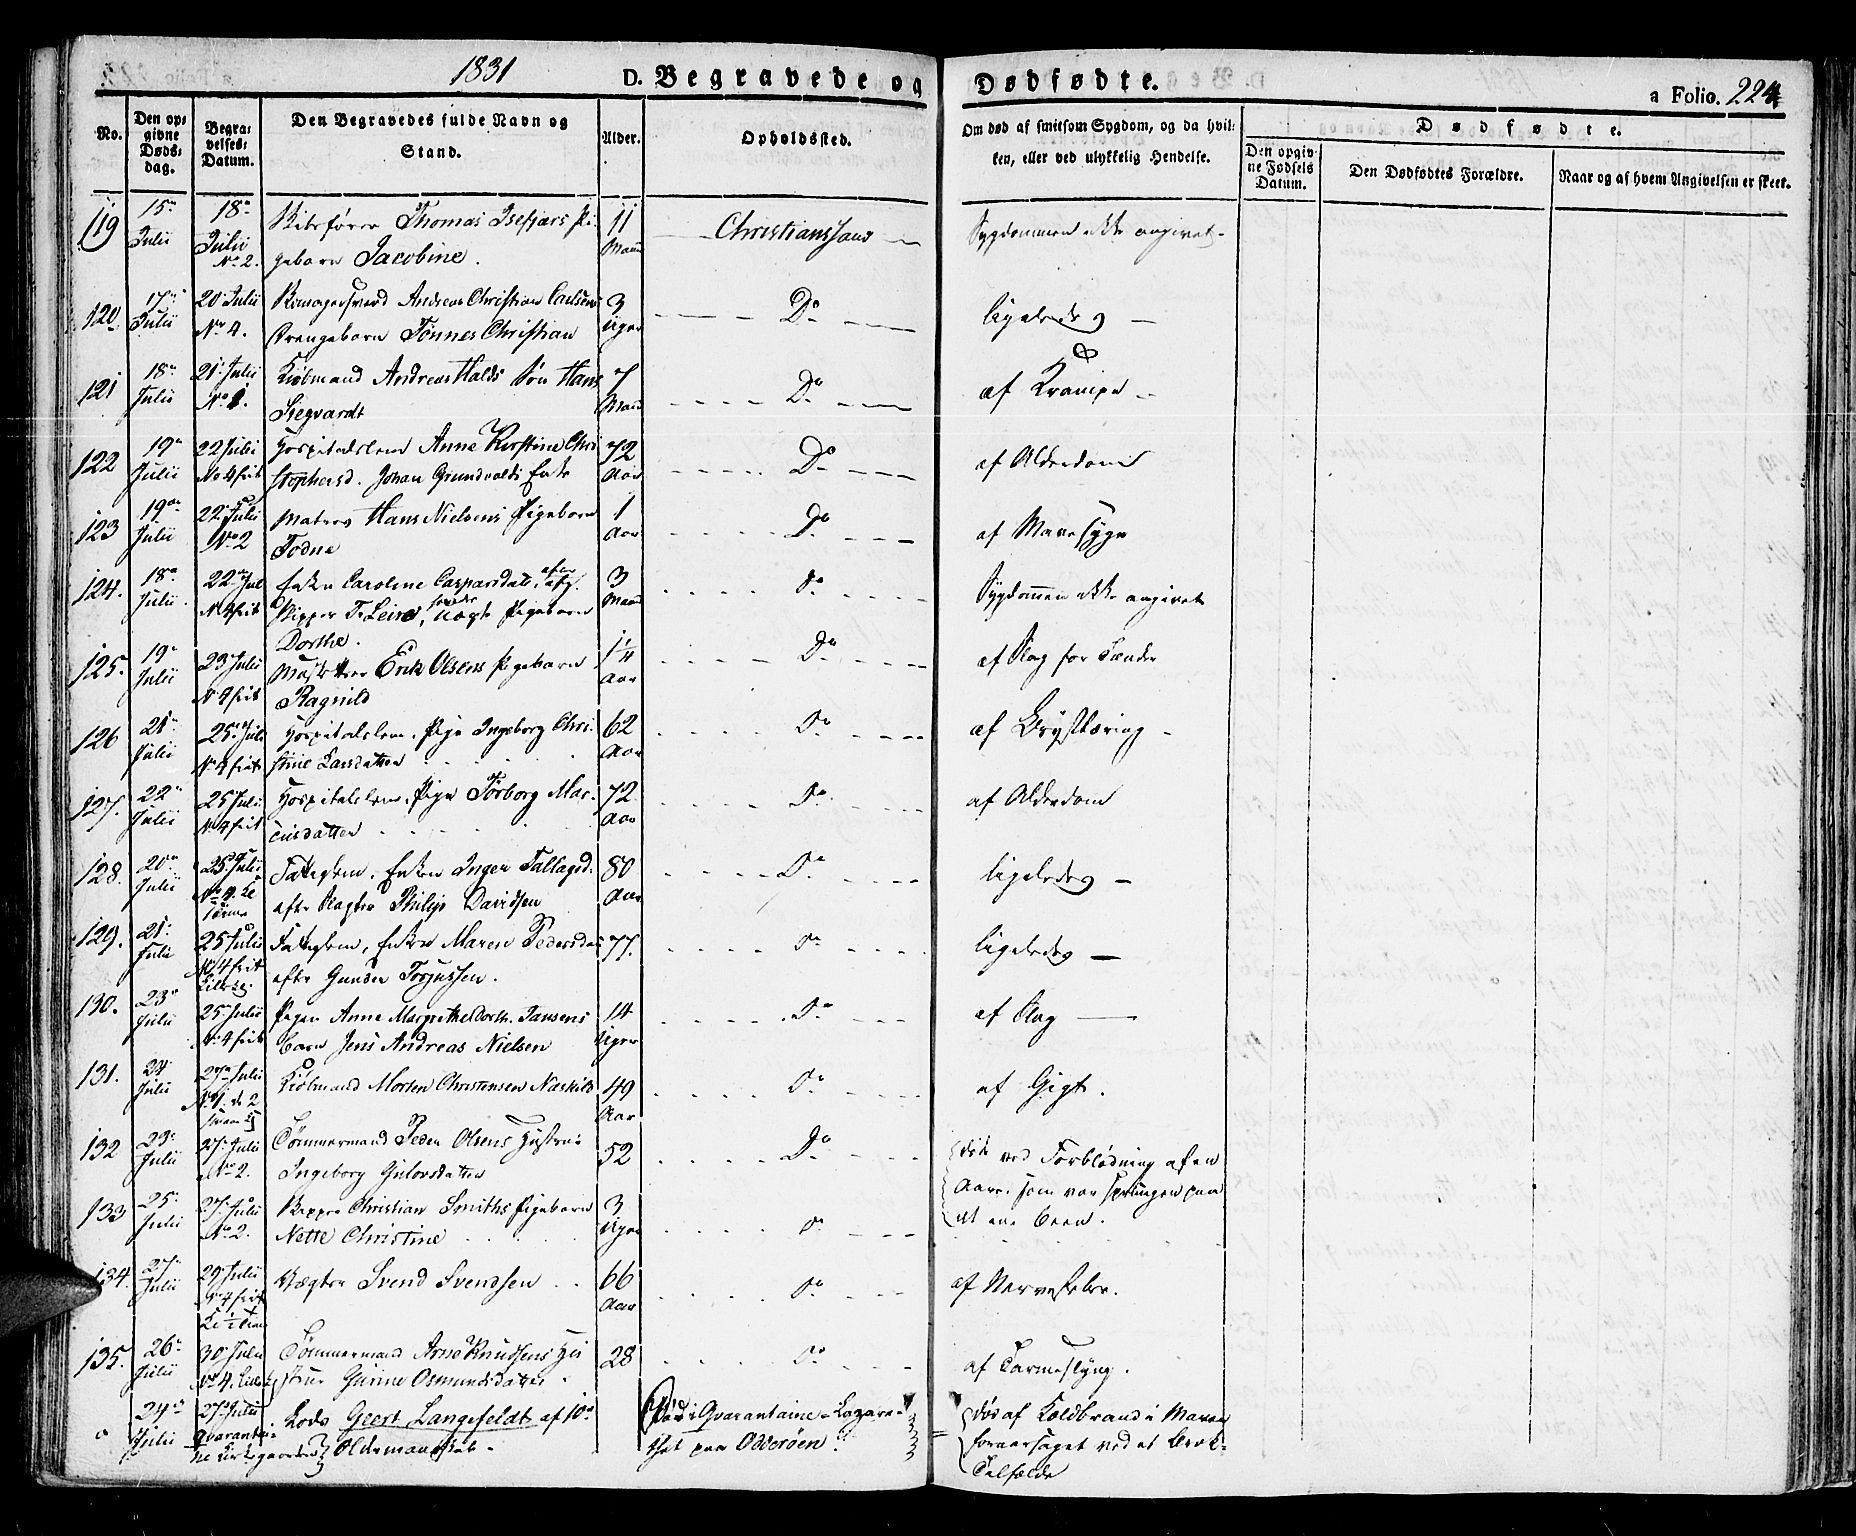 1831
D. Begravede og Dødfødte.
a Folio. 224
No.
Den opgivne Døds-dag.
Begravelses-Datum.
Den Begravedes fulde Navn og Stand.
Alder.
Opholdssted.
Om død af smitsom Sygdom, og da hvilken, eller ved ulykkelig Hendelse.
Dødfødte.
Den opgivne Fødsels Datum.
Den Dødfødtes Forældre.
Naar og af hvem Angivelsen er skeet.
119 15de Julii 18de Julii No 2. Thomas Isefjærs Pigebarn Jacobine. 11 Maan Christianssand Sygdommen ikke angivet
120 17de Julii 20 Julii No 4. Andreas Christian Carlsens Drengebarn Tønnes Christian 3 Uger Do ligeledes
121 18de Julii 21 Julii No 1. Kiøbmand Andreas Halds Søn Hans Siegvardt 7 Maan Do af Krampe
122 19de Julii 22 Julii No 4 frit Hospitalslem Anne Kirstine Christophersd. Johan Grundvolds Enke 72 Aar Do af Alderdom
123 19de Julii 22 Julii No 2 Matros Hans Nielsens Pigebarn Todne 1 Aar Do af Mavesyge
124. 18de Julii. 22de Jul No 4 frit Enken Caroline Caspersdatt. Skipper Pigebarn Dorthe. 3 Maan do Sygdommen ikke angivet
125. 19de Julii 23 Julii No 4 frit Erik Olsens Pigebarn Ragnild 1 1/4 Aar Do af Slag for Tænder
126 21de Julii 25de Juli No 4 frit Hospitalslem, Pige Ingeborg Christine Larsdatter 62 Aar Do af Brystværing
127. 22de Julii 25 Juli No 4 frit Hospitalslem, Pige Torborg Marcusdatter 72 Aar Do af Alderdom
128. 20de Julii 25 Julii No 4. Fattiglem, Enken Inger Tallagsd. efter Slagter Philip Davidsen 80 Aar Do ligeledes
129. 21de Julii 25 Julii No 4 frit Fattiglem, Enken Maren Pedersda efter Gunder Torjussen. 77. do ligeledes
130. 23de Julii 25 Julii No 4 frit Pigen Anne Margrethe Dorth. Jansens barn Jens Andreas Nielsen 14 Uger Do af Slag
131. 24 Julii 27de Julii No 1. Kiøbmand Morten Christensen Næskild 49 Aar do af Gigt.
132 23de Julii 27 Julii No 2. Tømmermand Peder Olsens Hustrue Ingeborg Gulovsdatter 52 Do døde ved Forblødning af en Aare, som var sprungen paa det ene Been.
133 25de Julii 27 Julii No 2. Skipper Christian Smiths Pigebarn Nette Christine 3 Uger do
134. 27de Julii 29 Julii No 4 frit Vægter Svend Svendsen 66 Aar do af Nervefeber.
135. 26de Julii 30 Julii No 4. Tømmermand Arne Knudsens Hustrue Gurine Osmundsdatter 28 do af Tarmeslyng.
24de Julii 27 Julii Qvarantaine Kirkegaarden Lods Geert Langefeldt af 10de Oldermandskab Død i Qvarantaine-Lazarethet paa Odderøen. død af Koldbrand i Maven foraarsaget ved et Brok-Tilfælde